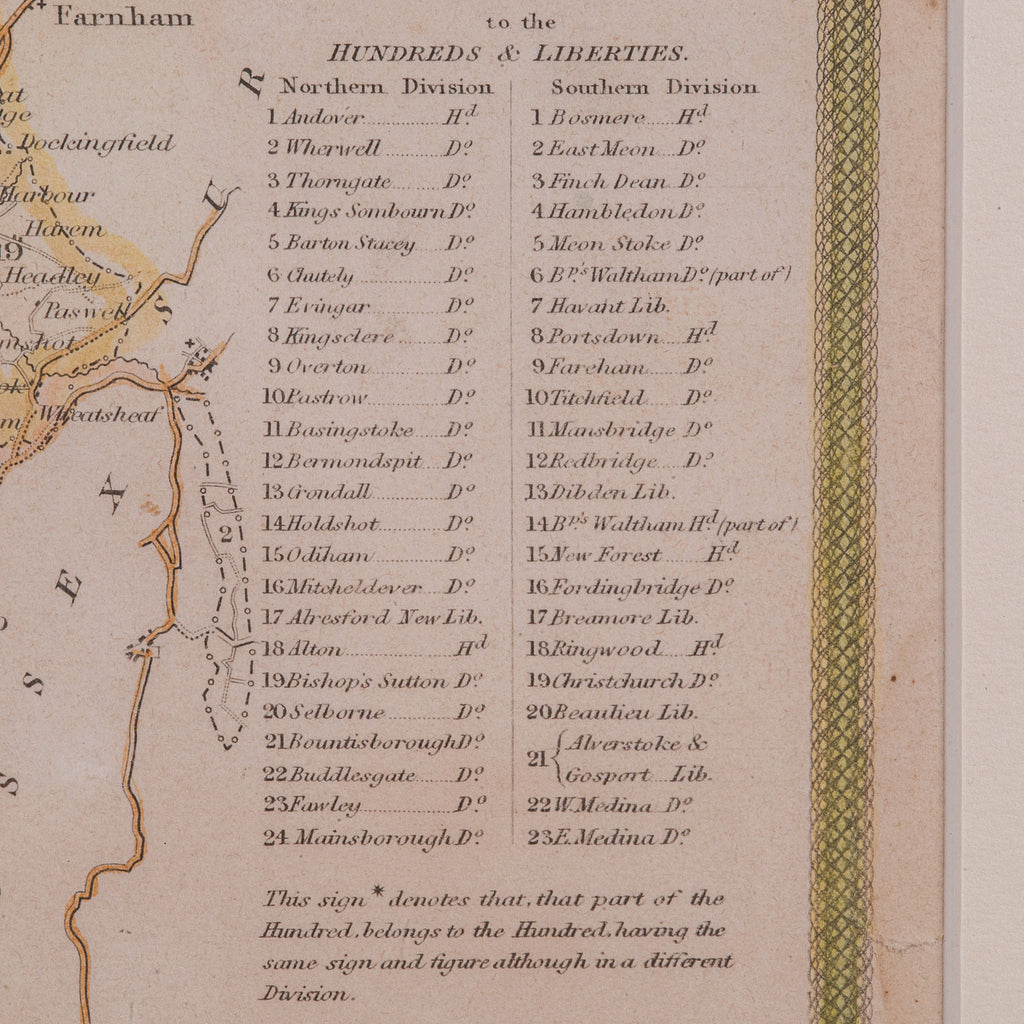 Farnham
Dockingfield
Harbour
Harem
19
Headley
Paswell
Wheatsheaf
2
S U R
S S E X
to the
HUNDREDS & LIBERTIES.
Northern Division
1 Andover Hd
2 Wherwell Do
3 Thorngate Do
4 Kings Sombourn Do
5 Barton Stacey Do
6 Chutely Do
7 Evingar Do
8 Kingsclere Do
9 Overton Do
10 Pastrow Do
11 Basingstoke Do
12 Bermondspit Do
13 Crondall Do
14 Holdshot Do
15 Odiham Do
16 Mitcheldever Do
17 Alresford New Lib.
18 Alton Hd
19 Bishop's Sutton Do
20 Selborne Do
21 Bountisborough Do
22 Buddlesgate Do
23 Fawley Do
24 Mainsborough Do
Southern Division
1 Bosmere Hd
2 East Meon Do
3 Finch Dean Do
4 Hambledon Do
5 Meon Stoke Do
6 Bp's Waltham Do (part of)
7 Havant Lib.
8 Portsdown Hd
9 Fareham Do
10 Titchfield Do
11 Mansbridge Do
12 Redbridge Do
13 Dibden Lib.
14 Bp's Waltham Hd (part of)
15 New Forest Hd
16 Fordingbridge Do
17 Breamore Lib.
18 Ringwood Hd
19 Christchurch Do
20 Beaulieu Lib.
21 { Alverstoke &
Gosport Lib.
22 W. Medina Do
23 E. Medina Do
This sign * denotes that, that part of the
Hundred, belongs to the Hundred, having the
same sign and figure although in a different
Division.